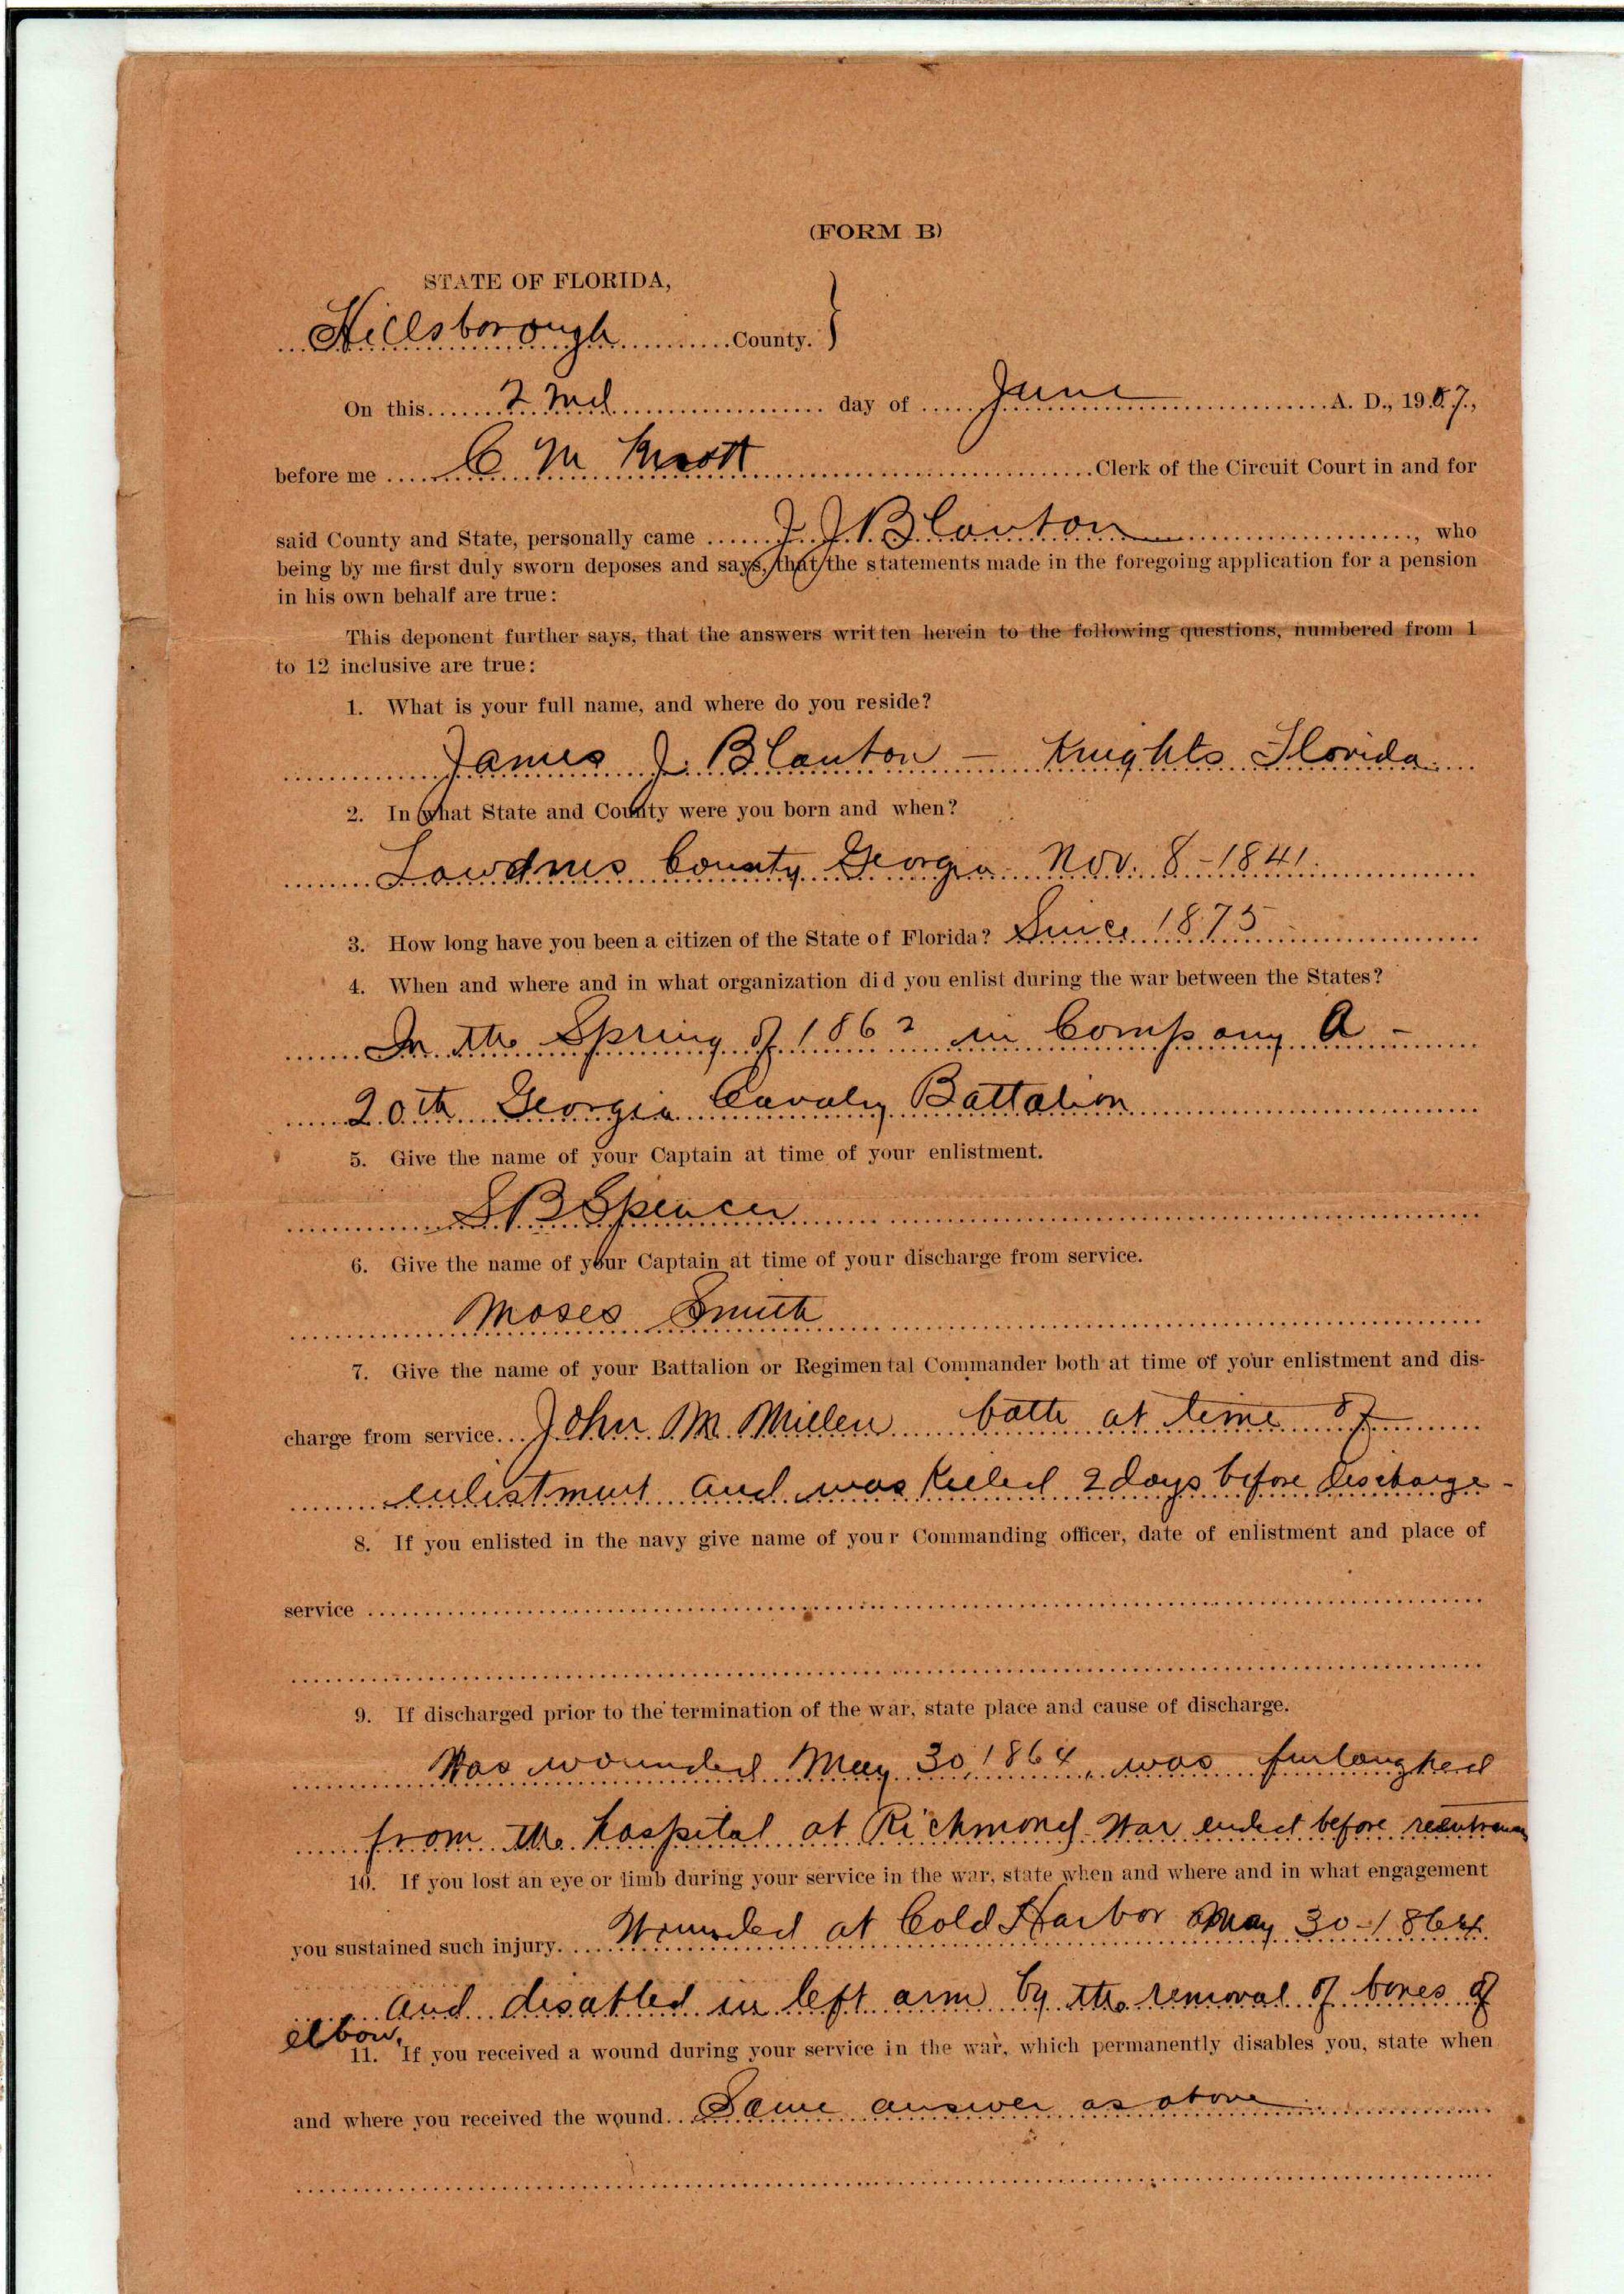 (FORM B)
STATE OF FLORIDA,
Hillsborough County. }
On this 2nd day of June A. D., 1907.,
before me C M Knott Clerk of the Circuit Court in and for
said County and State, personally came J. J. Blanton, who
being by me first duly sworn deposes and says, that the statements made in the foregoing application for a pension
in his own behalf are true:
This deponent further says, that the answers written herein to the following questions, numbered from 1
to 12 inclusive are true:
1. What is your full name, and where do you reside?
James J. Blanton — Knights Florida
2. In what State and County were you born and when?
Lowdnes County Georgia Nov. 8-1841.
3. How long have you been a citizen of the State of Florida? Since 1875
4. When and where and in what organization did you enlist during the war between the States?
In the Spring of 1862 in Company A -
20th Georgia Cavalry Battalion
5. Give the name of your Captain at time of your enlistment.
S B Spencer
6. Give the name of your Captain at time of your discharge from service.
Moses Smith
7. Give the name of your Battalion or Regimental Commander both at time of your enlistment and dis-
charge from service. John M. Millen both at time of
enlistment and was killed 2 days before discharge -
8. If you enlisted in the navy give name of your Commanding officer, date of enlistment and place of
service
9. If discharged prior to the termination of the war, state place and cause of discharge.
Was wounded May 30, 1864, was furloughed
from the hospital at Richmond. War ended before
10. If you lost an eye or limb during your service in the war, state when and where and in what engagement
you sustained such injury. Wounded at Cold Harbor May 30-1864
and disabled in left arm by the removal of bones of
elbow.
11. If you received a wound during your service in the war, which permanently disables you, state when
and where you received the wound. Same answer as above